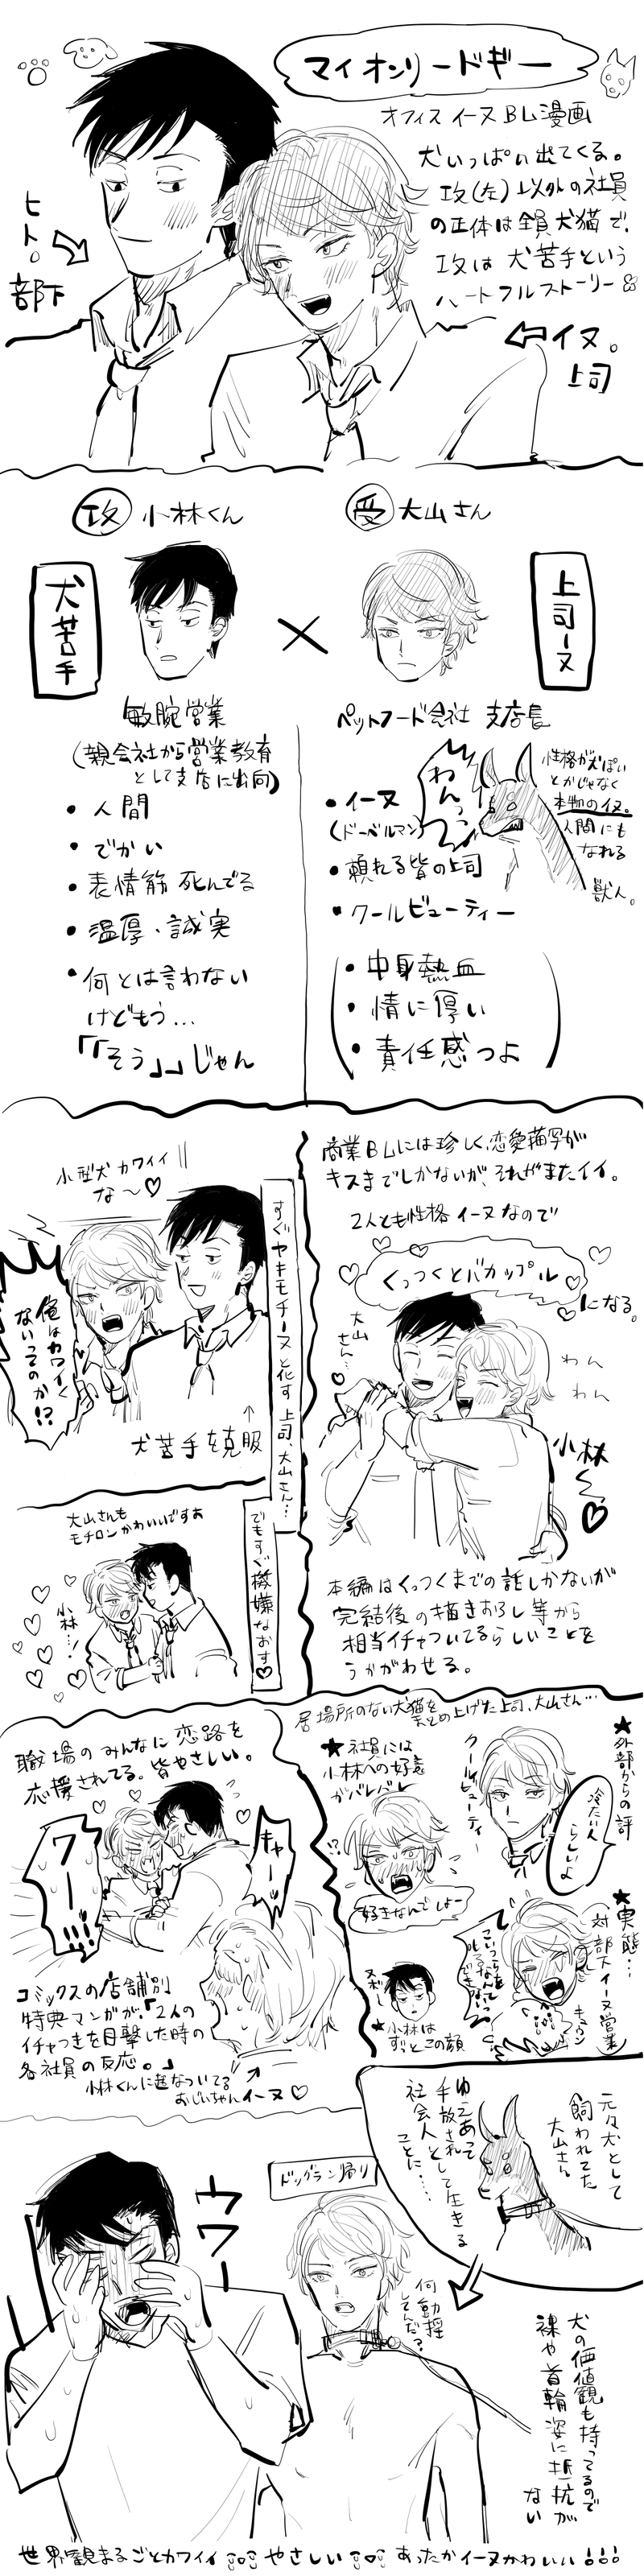 マイオンリードギー
オフィスイーヌBL漫画
犬いっぱい出てくる。
攻(左)以外の社員
の正体は全員犬猫で、
攻は犬苦手という
ハートフルストーリー
ヒト。
部下
イヌ。
上司
攻 小林くん
受 大山さん
犬苦手
×
上司イーヌ
敏腕営業
(親会社から営業教育
として支店に出向)
・人間
・でかい
・表情筋死んでる
・温厚、誠実
・何とは言わない
けどもう…
「「そう」」じゃん
ペットフード会社 支店長
・イーヌ
(ドーベルマン)
わんっっ
性格が犬ぽい
とかじゃなく
本物のイヌ。
人間にも
なれる
獣人。
・頼れる皆の上司
・クールビューティー
・中身熱血
・情に厚い
・責任感つよ
商業BLには珍しく、恋愛描写が
キスまでしかないが、それがまたイイ。
2人とも性格イーヌなので
くっつくとバカップル
になる。
大山
さん…
わん
わん
小林
〜♡
本編はくっつくまでの話しかないが
完結後の描きおろし等から
相当イチャついてるらしいことを
うかがわせる。
小型犬カワイイ
な〜♡
すぐヤキモチイーヌと化す上司、大山さん…
俺はカワイく
ないってのか!?
↑
犬苦手を克服
大山さんも
モチロンかわいいですよ
でもすぐ機嫌なおす♡
小林…!
居場所のない犬猫をまとめ上げた上司、大山さん…
★外部からの評
クールビューティー
冷たい人
らしいよ
★社員には
小林への好意
がバレバレ
!?
好きなんでしょー
★実態…
(対部下イーヌ営業)
キュウン
★小林は
ずっとこの顔
職場のみんなに恋路を
応援されてる。皆やさしい。
ワーッ!!!
キャーッ
コミックスの店舗別
特典マンガが、「2人の
イチャつきを目撃した時の
各社員の反応。」
小林くんに超なついてる
おじいちゃんイーヌ♡
元々犬として
飼われてた
大山さん
ゆえあって
手放され
社会人として生きる
ことに…
ドッグラン帰り
ウワー
何動揺
してんだ?
犬の価値観も持ってるので
裸や首輪姿に抵抗が
ない
世界観まるごとカワイイ やさしい あったかイーヌかわいい!!!